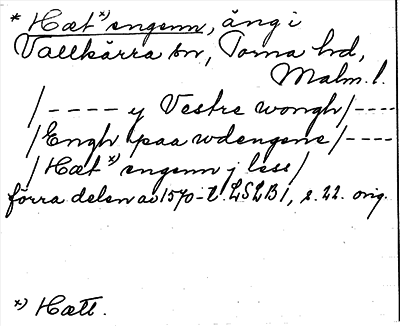 * Hæt *) engenn, äng i
Vallkärra sn, Torna hd,
Malm. l.
/---- y Vestre wongh/----
/Engh paa wdengene/----
/Hæt *) engenn j less/
förra delen av 1570-t. LSLB 1, s. 22. orig.
*) Hætt.